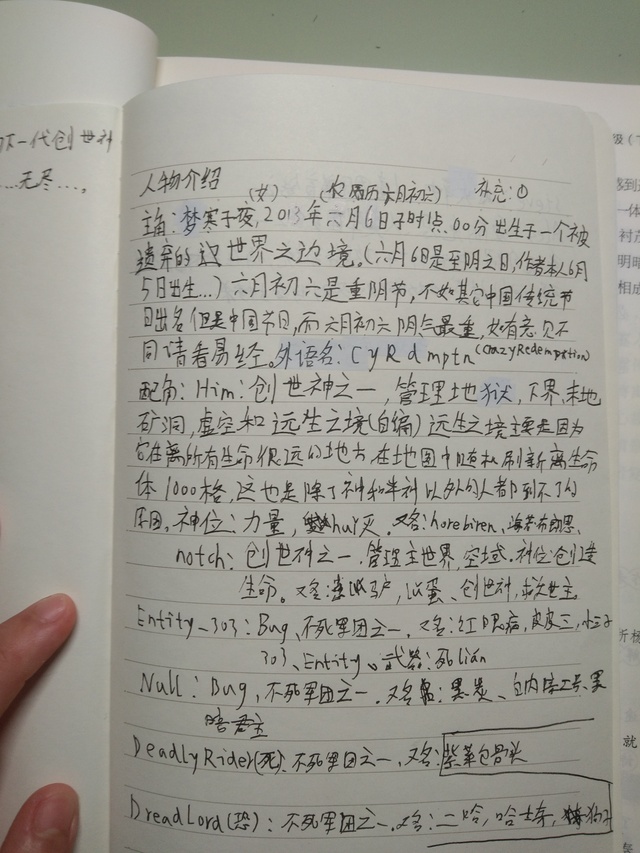 下一代创世神
……无尽……。
人物介绍 (女) (农历历六月初六) 补充:①
主角:梦寒子夜,2013年六月6日子时0点.00分出生于一个被
遗弃的边世界之边境。(六月6日是至阴之日,作者本人6月
5日出生…)六月初六是重阴节,不如其它中国传统节
日出名但是中国节日,而六月初六阴气最重,如有意见不
同请看易经。外语名:CyRdmptn(CrazyRedemption)
配角:Him:创世神之一,管理地狱,下界,末地
矿洞,虚空和远生之境(自编)远生之境主要是因为
它在离所有生命很远的地方,在地图中随机刷新离生命
体1000格,这也是除了神和半神以外的人都到不了的
原因。神位:力量,hui灭.又名:horebiren、海若布朗恩、
notch:创世神之一.管理主世界,空域.神位:创造
生命。又名:脑驴,以蛋、创世神,救世主
Entity_303:Bug、不死军团之一.又名:红眼病,皮皮三,小三子
303、Entity、武器:死lián
Null:Bug,不死军团之一.又名:黑炭、白内障工号、黑
暗君主
DeadlyRider(死):不死军团之一、又名:紫革包骨头
DreadLord(恐):不死军团之一.又名:二哈,哈士奇,狗子
级(下
感到
一体
衬
明暗
相成
析
就